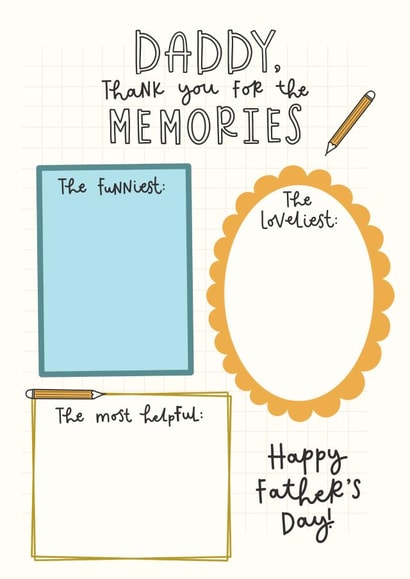 DADDY,
THANK YOU FOR THE
MEMORIES
The funniest:
The
loveliest:
The most helpful:
Happy
Father's
Day!